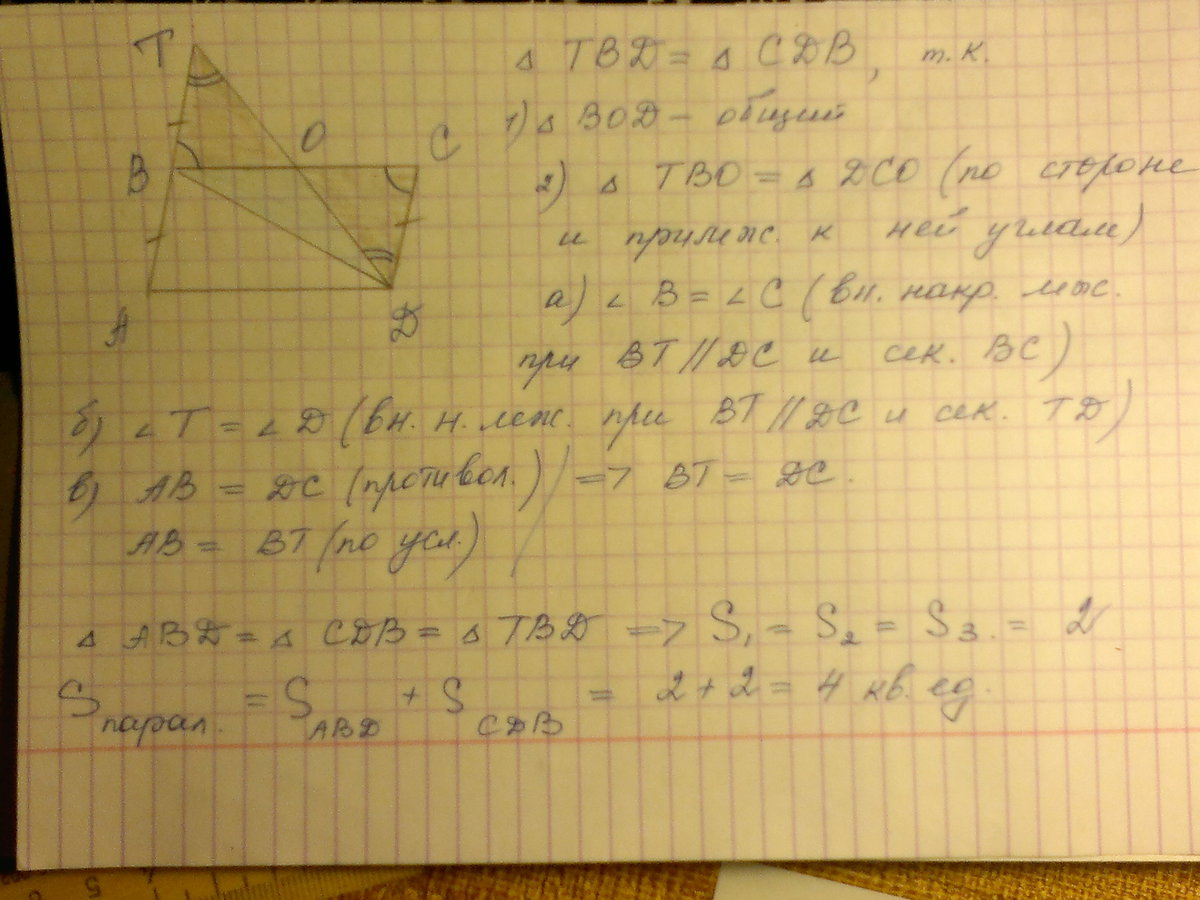 T
O
C
B
A
D
△ TBD = △ CDB, т.к.
1) △ BOD – общий
2) △ TBO = △ DCO (по стороне
и прилеж. к ней углам)
а) ∠ B = ∠ C (вн. накр. леж.
при BT // DC и сек. BC)
б) ∠ T = ∠ D (вн. н. леж. при BT // DC и сек. TD)
в) AB = DC (противол.) => BT = DC.
AB = BT (по усл.)
△ ABD = △ CDB = △ TBD => S₁ = S₂ = S₃. = 2
Sпарал. = S ABD + S CDB = 2 + 2 = 4 кв. ед.
5